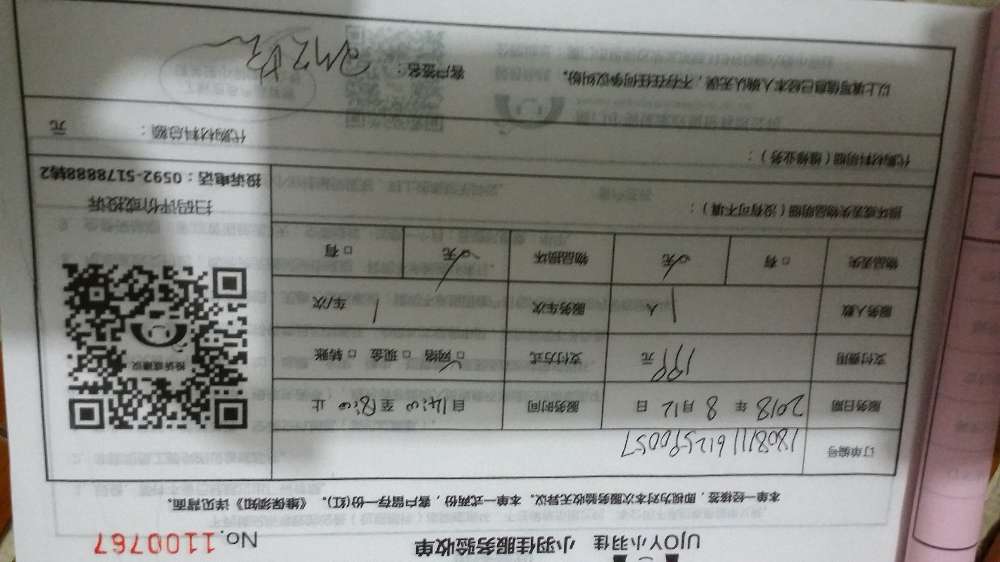 UJOY小羽佳 小羽佳服务验收单 No.1100767
本单一经接签，即视为对本次服务验收无异议。本单一式两份，客户留存一份(红)。《维保须知》详见背面。
订单编号 180811161259005
服务日期 2018 年 8 月 12 日 服务时间 自 14:00 至 18:00 止
支付费用 199 元 支付方式 ☑ 网络 □ 现金 □ 转账
服务人数 1 人 服务车次 1 车/次
物品丢失 □ 有 ☑ 无 物品损坏 ☑ 无 □ 有
损坏或丢失物品明细（没有可不填）：
扫码评价或投诉
投诉电话：0592-5178888转2
代购材料明细（维修业务）：
代购材料总额： 元
以上填写信息已经本人确认无误，不存在任何争议纠纷。 客户签名：
投诉或建议